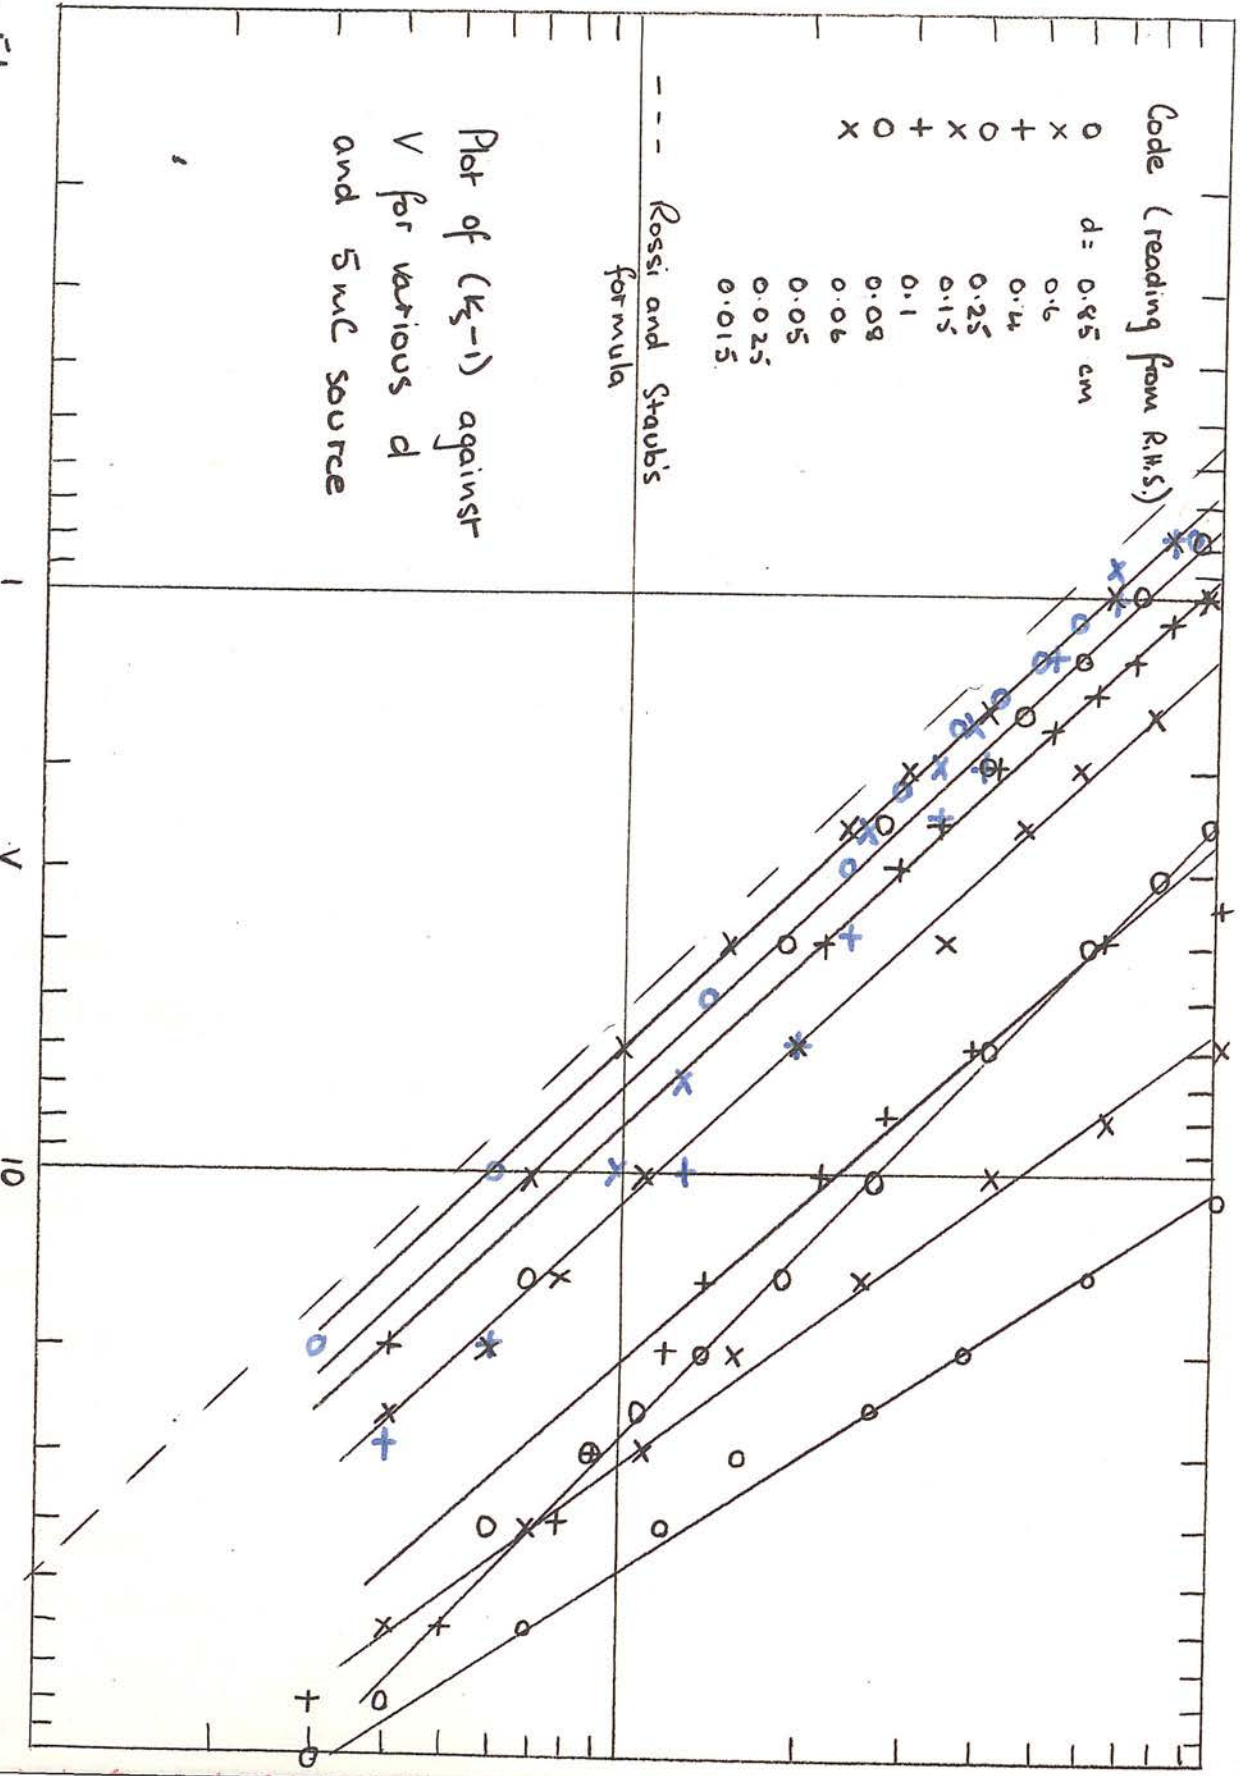 Code (reading from R.H.S.)
o d = 0.85 cm
x 0.6
+ 0.4
o 0.25
x 0.15
+ 0.1
o 0.08
x 0.06
0.05
0.025
0.015
--- Rossi and Staub's
formula
Plot of (Ks-1) against
V for various d
and 5 mC source
1
V
10